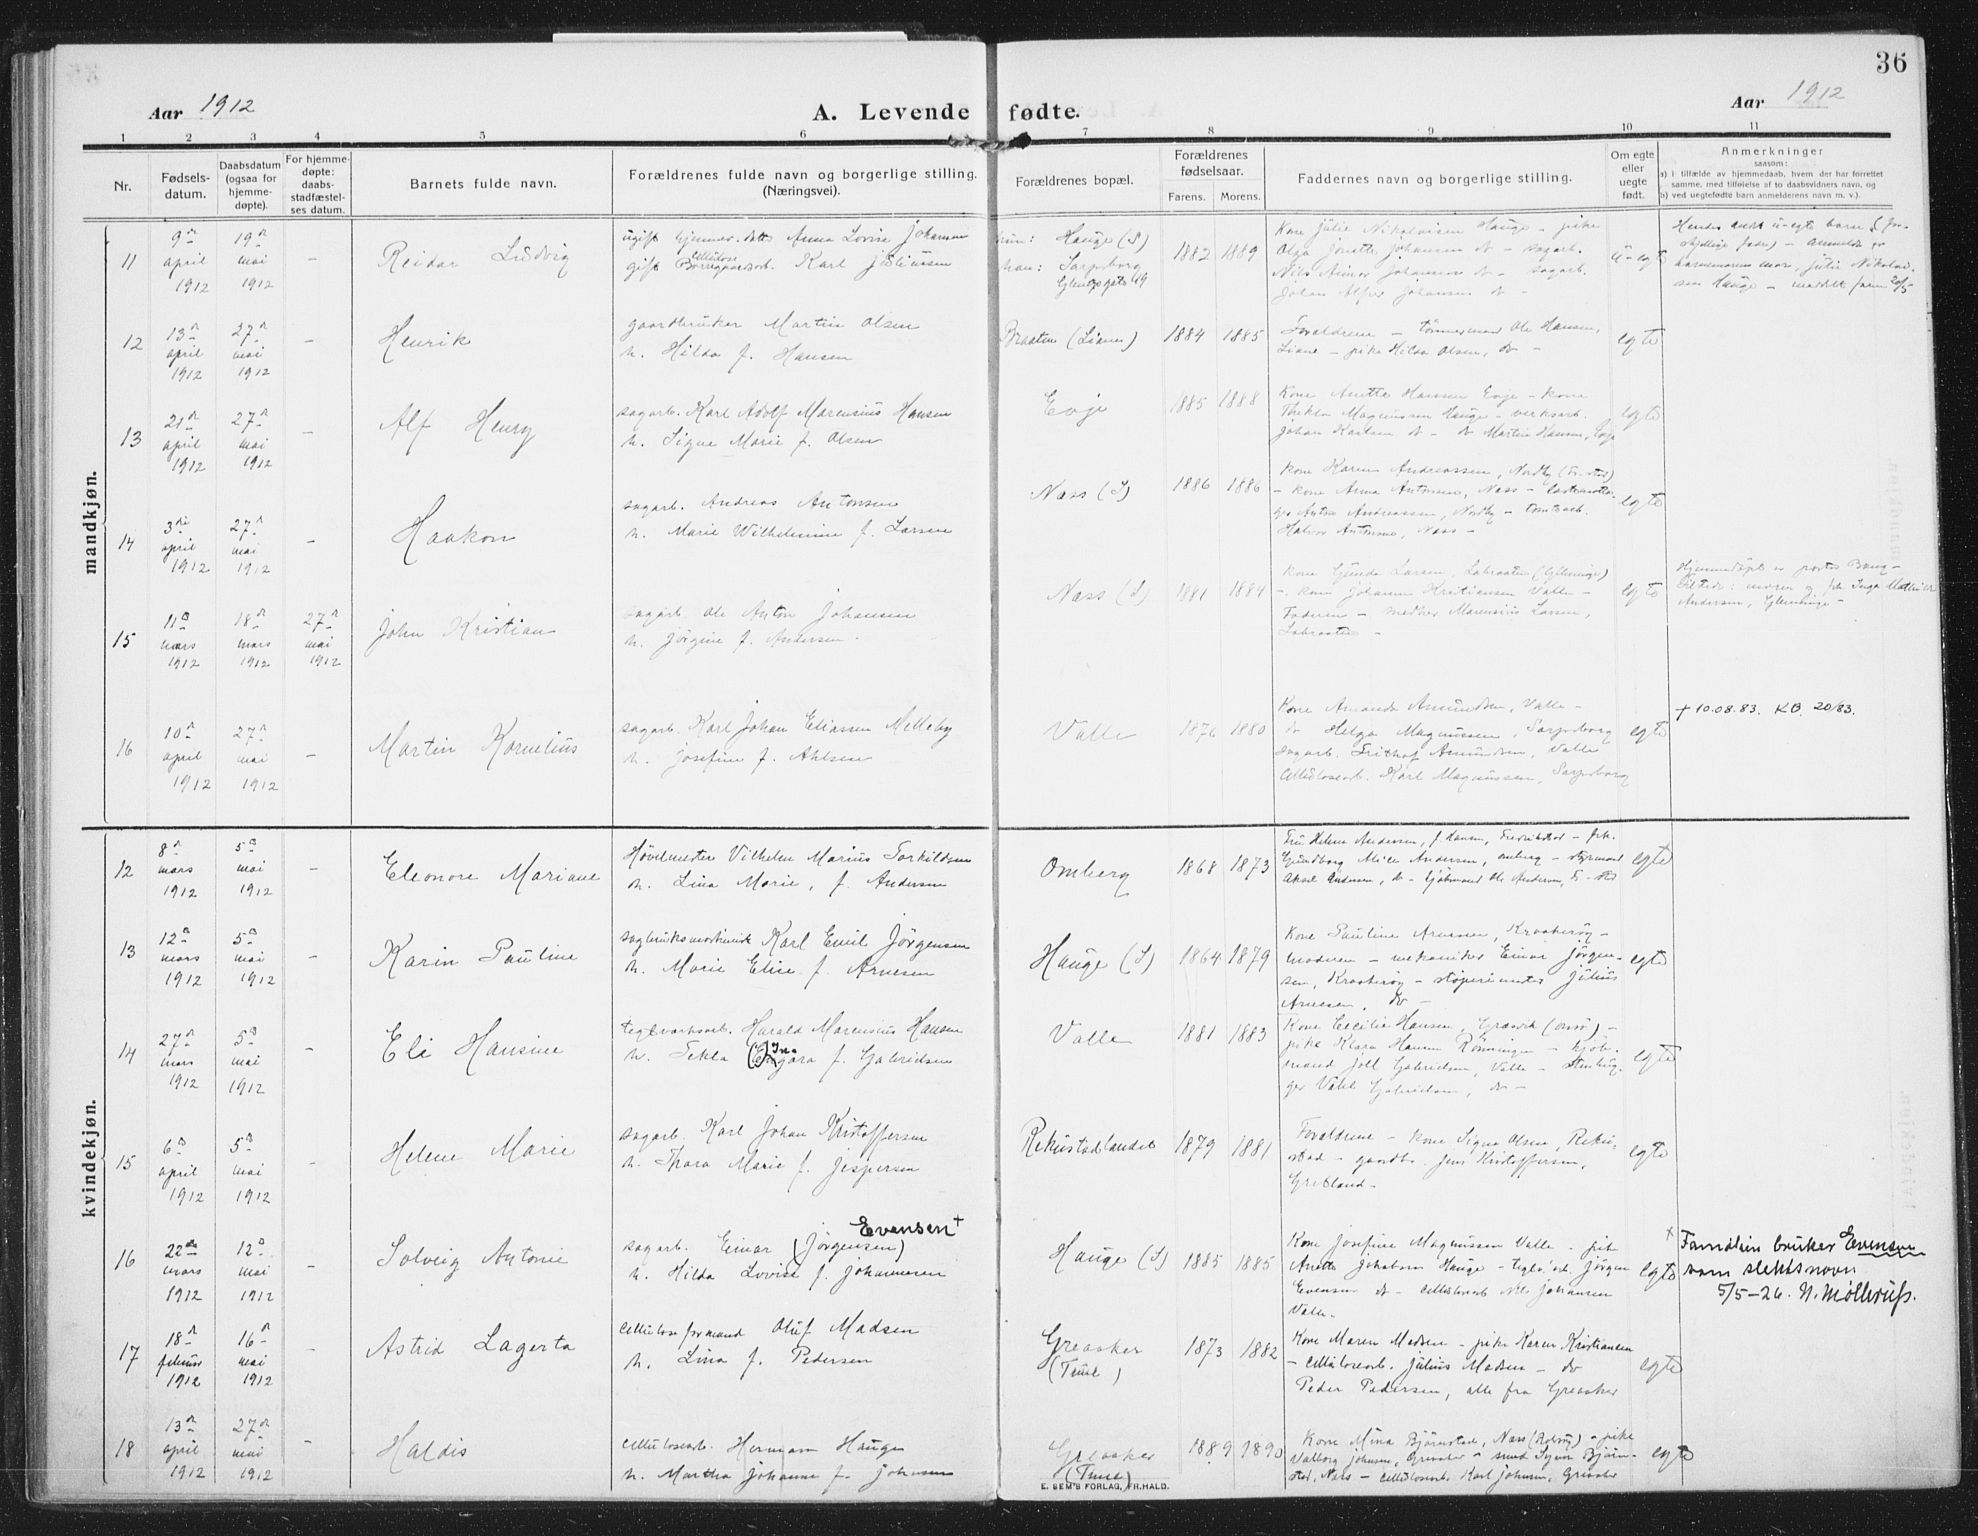 36
Aar 1912
A. Levende fødte.
Aar 1912
1 2 3 4 5 6 7 8 9 10 11
Nr.
Fødsels-
datum.
Daabsdatum
(ogsaa for
hjemme-
døpte).
For hjemme-
døpte:
daabs-
stadfæstel-
ses datum.
Barnets fulde navn.
Forældrenes fulde navn og borgerlige stilling.
(Næringsvei).
Forældrenes bopæl.
Forældrenes
fødselsaar.
Farens. Morens.
Faddernes navn og borgerlige stilling.
Om egte
eller
uegte
født.
Anmerkninger
saasom:
a) i tilfælde av hjemmedaab, hvem der har forrettet
samme, med tilføielse af to daabsvidners navn, og
b) ved uegtefødte barn anmelderens navn m. v.).
mandkjøn.
11
9de april 1912
19de mai 1912
–
Reidar Ludvig
ugift hjemmev. datter Anna Lovise Johansen
gift Cellulose Borregaardsarb. Karl Juliussen
hun: Hauge (S)
han: Sarpsborg
Glengsgata 49
1882 1889
Kone Julie Nikolaisen Hauge – pike
Olga Josette Johansen do – sagarb.
Nils Aimar Johansen do – sagarb.
Johan Alfer Johansen do –
u-egte
Hendes andet u-egte barn (for-
skjellige fædre) – anmeldt av
barnemorens mor, Julie Nikolai-
sen Hauge – meddelt faren 20/5
12
13de april 1912
27de mai 1912
–
Henrik
gaardbruker Martin Olsen
h. Hilda f. Hansen
Braaten (Liane)
1884 1885
Forældrene – tømmermand Ole Hansen,
Liane – pike Hilda Olsen, do –
egte
13
21de april 1912
27de mai 1912
–
Alf Henry
sagarb. Karl Adolf Marensius Hansen
h. Signe Marie f. Olsen
Evje
1885 1888
Kone Anette Hansen Evje – kone
Thekla Magnussen Hauge – verksarb.
Johan Karlsen do – do Martin Hansen, Evje
egte
14
3die april 1912
27de mai 1912
–
Haakon
sagarb. Andreas Antonsen
h. Marie Wilhelmine f. Larsen
Næss (S)
1886 1886
Kone Karen Andreassen, Nordby (Fr.stad)
– kone Anna Antonsen, Næss –
ger Anton Andreassen, Nordby – tomtearb.
Halvor Antonsen, Næss –
egte
15
11te mars 1912
18de mars 1912
27de mai 1912
John Kristian
sagarb. Ole Anton Johansen
h. Jørgine f. Andersen
Næss (S)
1881 1884
Kone Gunda Larsen, Labraaten (Glemminge)
– kone Johanne Kristiansen Valle –
Faderen – Marensius Larsen,
Labraaten –
egte
Hjemmedøpt av prosten Bang-
moren og frk. Inga Mathilde
Andersen, Glemminge –
16
10de april 1912
27de mai 1912
–
Martin Kornelius
sagarb. Karl Johan Eliassen Melleby
h. Josefine f. Ahlsen
Valle
1876 1880
Kone Amanda Amundsen, Valle –
do Helga Magnussen, Sarpsborg
sagarb. Fridthof Amundsen, Valle
cellulosearb. Karl Magnussen, Sarpsborg
egte
† 10.08.83. KB. 20/83.
kvindekjøn.
12
8de mars 1912
5te mai 1912
–
Eleonore Mariane
Høvelmester Vilhelm Marius Torkildsen
h. Lina Marie, f. Andersen
Omberg
1868 1873
Fru Helene Andersen, f. Hansen, Fredrikstad – frk.
Gundborg Alice Andersen, Omberg – styrmand
Aksel Andersen, do – kjøbmand Ole Andersen, Fr-stad
egte
13
12te mars 1912
5te mai 1912
–
Karin Pauline
sagbruksmaskinist Karl Emil Jørgensen
h. Marie Elise f. Arnesen
Hauge (S)
1864 1879
Kone Pauline Arnesen, Kraakerøy –
moderen – mekaniker Einar Jørgen-
sen, Kraakerøy – støperimester Julius
Arnesen, do –
egte
14
27de mars 1912
5te mai 1912
–
Eli Hansine
teglverksarb. Harald Marensius Hansen
h. Tekla (E) In gara f. Gabrielsen
Valle
1881 1883
Kone Cecilie Hansen, Græsvik (Onsø) –
pike Klara Hansen Rønningen – kjøb-
mand Joël Gabrielsen, Valle – stenhug-
ger Valdl Gabrielsen, do –
egte
15
6te april 1912
5te mai 1912
–
Helene Marie
sagarb. Karl Johan Kristoffersen
h. Thora Marie f. Jespersen
Rekustadlandet
1879 1881
Forældrene – kone Signe Olsen, Reku-
stad – gaardbr. Jens Kristoffersen,
Gretland –
egte
16
22de mars 1912
12te mai 1912
–
Solveig Antonie
Evensen +
sagarb. Einar (Jørgensen)
h. Hilda Lovise f. Johannesen
Hauge (S)
1885 1885
Kone Josefine Magnussen Valle – pike
Anette Jakobsen Hauge – teglv.arb. Jørgen
Evensen do – cellulosearb. Nils Johansen
Valle.
egte
× Familien bruker Evensen
som slektsnavn
5/5–26. N. Møllerups.
17
18de februar 1912
16de mai 1912
–
Astrid Lagerta
celluloseformand Oluf Madsen
h. Lina f. Pedersen
Greaaker
(Tune)
1873 1882
Kone Maren Madsen – pike Karen Kristiansen
– cellulosearb. Julius Madsen – do
Peder Pedersen, alle fra Greaaker
egte
18
13de april 1912
27de mai 1912
–
Haldis
cellulosearb. Herman Haugen
h. Martha Johanne f. Johnsen
Greaaker
(Tune)
1889 1890
Kone Mina Bjørnstad, Næss (Rolvsøy) – pike
Valborg Johnsen, Greaaker – smed Bjørn-
stad, Næss – cellulosearb. Karl Johnsen, Greaaker
egte
E. SEM'S FORLAG, FR.HALD.